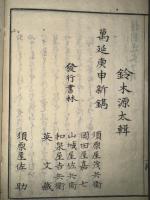 鈴木源太輯
萬延庚申新鐫
發行書林
須原屋茂兵衛
岡田屋嘉七
山城屋佐兵衛
和泉屋吉兵衛
英文藏
須原屋佐助